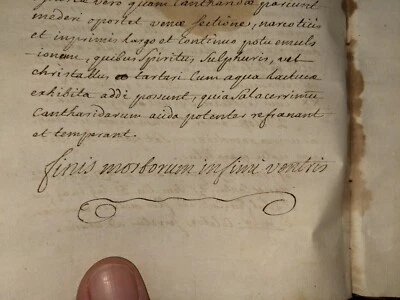 vero quam Cantharidae possunt
mederi oportet venae sectione, narcoticis
et inprimis largo et continuo potu emuls
ionum, quibus Spiritus, Sulphuris, vel
christallus tartari Cum aqua lactucae
exhibita addi possunt, quia Salacerrimu
Cantharidarum acida potenter refranant
et temperant.
finis morborum infimi ventris